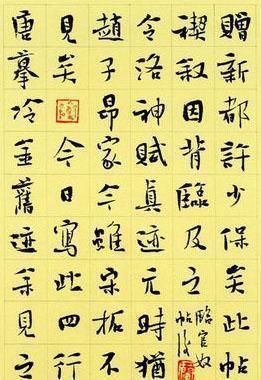 贈新都許少保矣此帖
禊叙因背臨及之
臨官奴帖後
令洛神賦真迹元時猶
趙子昂家今雖宋拓不
見矣今日寫此四行
唐摹冷金舊迹余見之